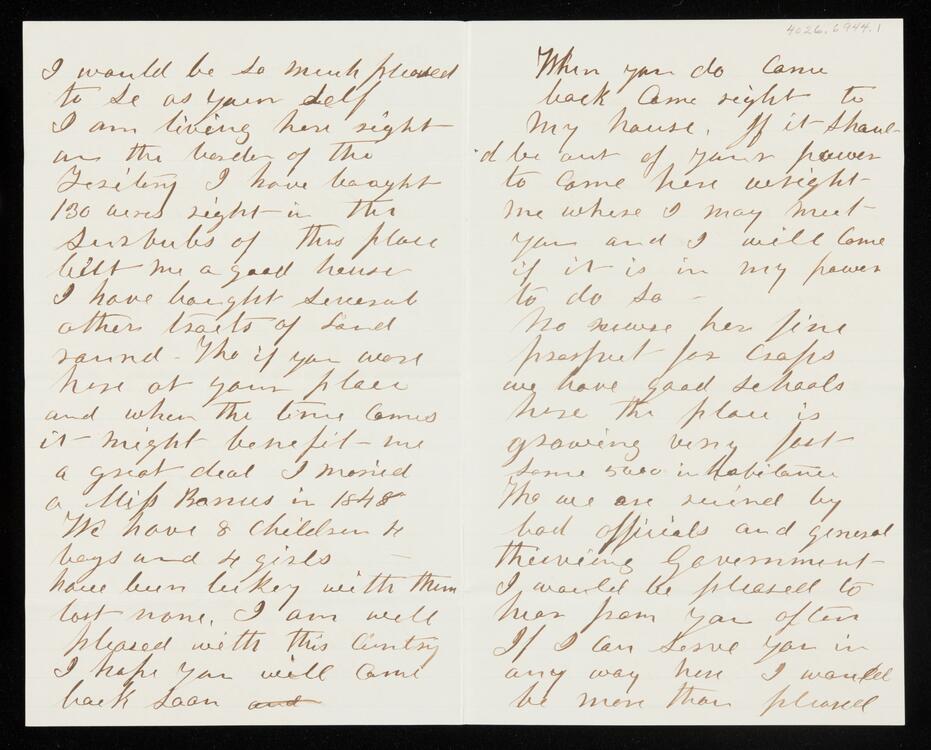 4026.6944.1
I would be so much pleased
to se as your self
I am living here right
on the border of the
Teritery I have baught
130 acres right in the
Surbubs of this place
bilt me a good house
I have baught several
others tracts of Land
round - Tho if you ware
here at your place
and when the time Comes
it might benefit me
a great deal I maried
a Miss Barnes in 1848
We have 8 Children 4
boys and 4 girls -
have been luckey with them
lost none. I am well
pleased with this Cuntry
I hope you will Come
back soon and
When you do Come
back Come right to
my house. If it shaul-
d be out of your power
to Come here wright
me where I may meet
you and I will Come
if it is in my power
to do so -
No newse her fine
prospect for Craps
we have good schools
here the place is
growing very fast
some 5000 inhabitance
Tho we are ruined by
bad officials and general
theiving Government
I would be pleased to
hear from you often
If I Can serve you in
any way here I would
be more than pleased